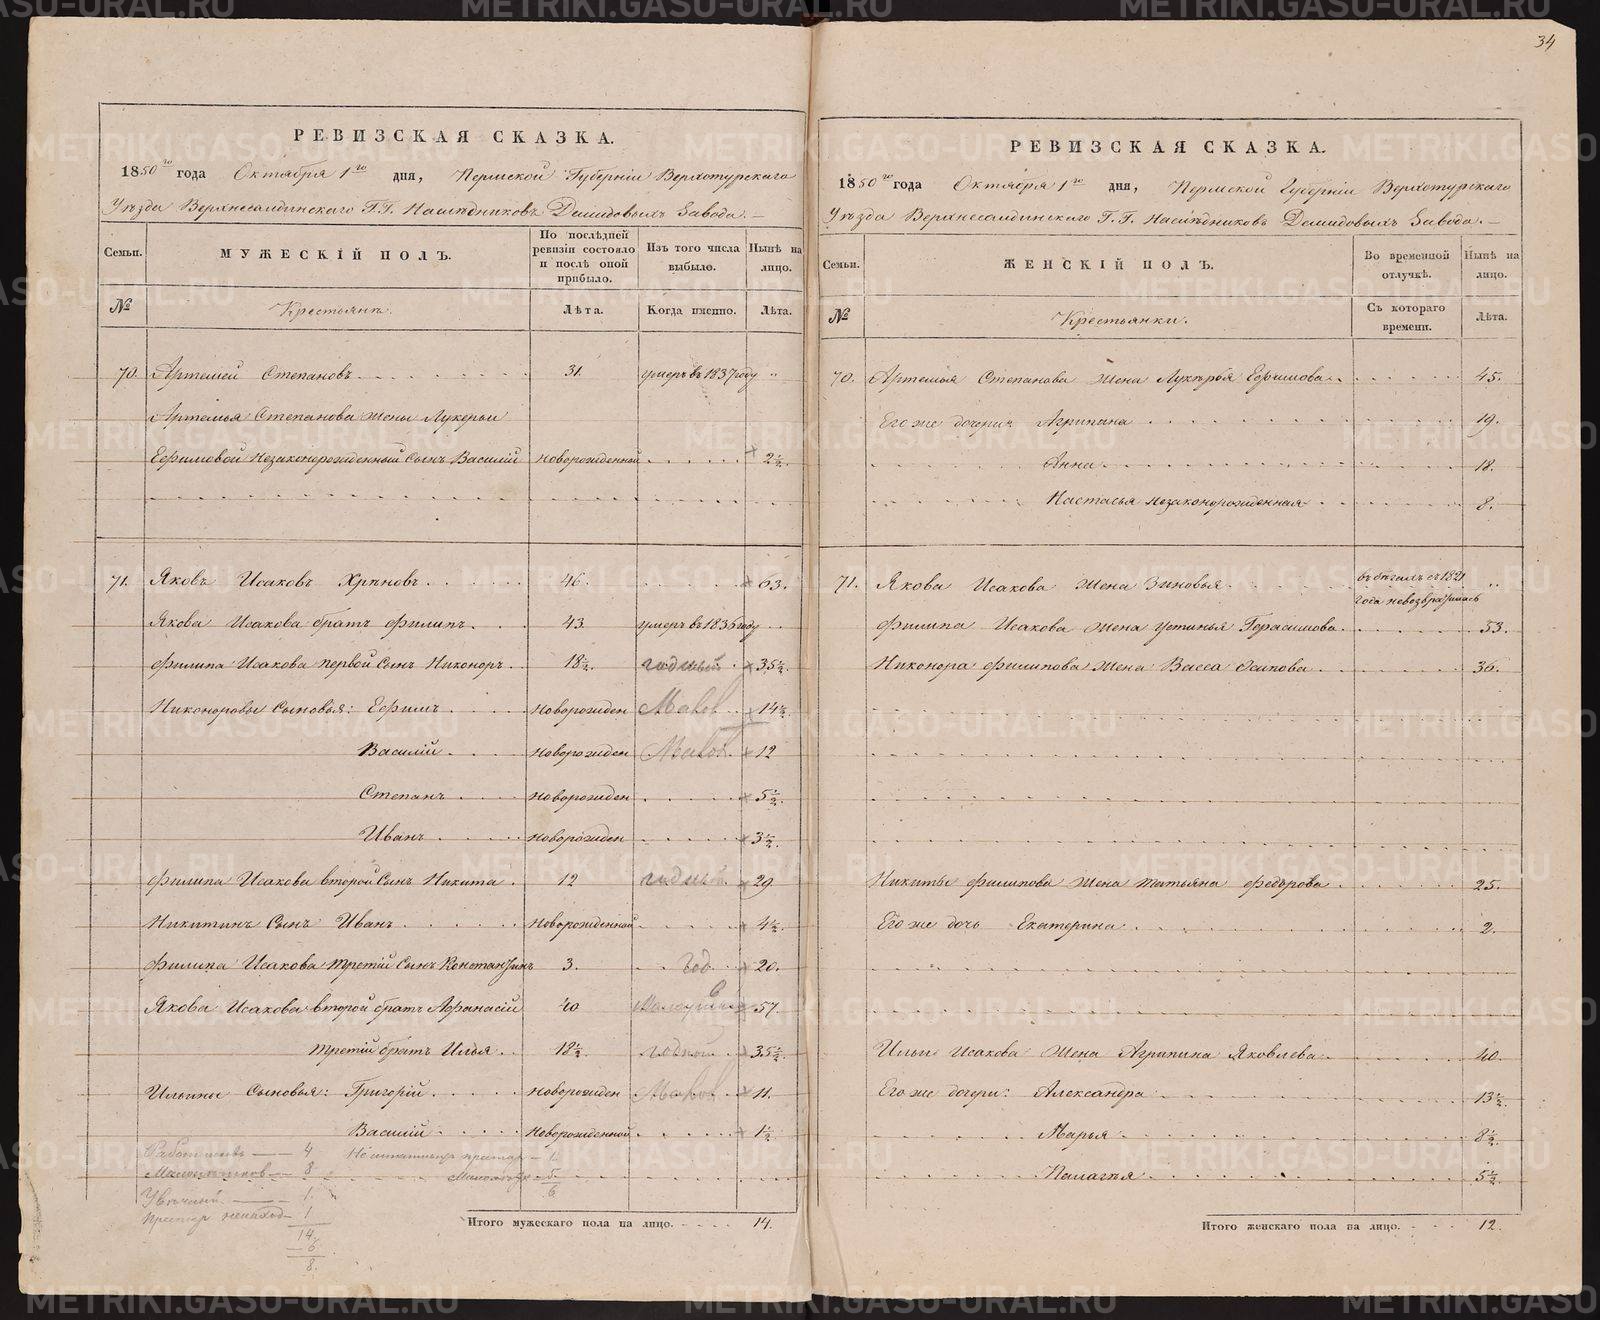 34
РЕВИЗСКАЯ СКАЗКА.
1850го года Октября 1го дня, Пермской Губерніи Верхотурскаго
Уѣзда Верхнесалдинскаго Г.Г. Наслѣдниковъ Демидовыхъ Завода.
Семьи.
МУЖЕСКІЙ ПОЛЪ.
По послѣдней ревизіи состояло и послѣ оной прибыло.
Изъ того числа выбыло.
Нынѣ на лицо.
№
Крестьянъ.
Лѣта.
Когда именно.
Лѣта.
70. Артемей Степановъ 31. умеръ въ 1837 году "
Артемья Степанова жены Лукерьи
Ефимовой незаконорожденный сынъ Василій новорожденной 2½.
71. Яковъ Исаковъ 46. 63.
Якова Исакова братъ Филипъ 43. умеръ въ 1836 году
Филипа Исакова первой сынъ Никоноръ 18½. годный 35½.
Никоноровы сыновья: Ефимъ новорожден 14½.
Василій новорожден 12
Степанъ новорожден 5½.
Иванъ новорожден 3½.
Филипа Исакова второй сынъ Никита 12 годный 29.
Никитинъ сынъ Иванъ новорожденной 4½.
Филипа Исакова третій сынъ Констанзинъ 3. год 20.
Якова Исакова второй братъ Афанасій 40 57.
третій братъ Илья 18½. годной 35½.
Ильины сыновья: Григорій новорожден 11.
Василій новорожденной 1½.
Итого мужескаго пола на лицо. 14.
4
8
1.
1
14.
6
8.
1.
5
6.
РЕВИЗСКАЯ СКАЗКА.
1850го года Октября 1го дня, Пермской Губерніи Верхотурскаго
Уѣзда Верхнесалдинскаго Г.Г. Наслѣдниковъ Демидовыхъ Завода.
Семьи.
ЖЕНСКІЙ ПОЛЪ.
Во временной отлучкѣ.
Нынѣ на лицо.
№
Крестьянки.
Съ котораго времени.
Лѣта.
70. Артемья Степанова жена Лукерья Ефимова 45.
Его же дочери Агрипина 19.
Анна 18.
Настасья незаконорожденная 8.
71. Якова Исакова жена Зиновья въ бѣгахъ съ 1821 "
года невозвратилась
Филипа Исакова жена Устинья Герасимова 53.
Никонора Филипова жена Васса Осипова 36.
Никиты Филипова жена Татьяна Федорова 25.
Его же дочь Екатерина 2.
Ильи Исакова жена Агрипина Яковлева 40.
Его же дочери: Александра 13½.
Марья 8½.
Палагья 5½.
Итого женскаго пола на лицо. 12.
METRIKI.GASO-URAL.RU